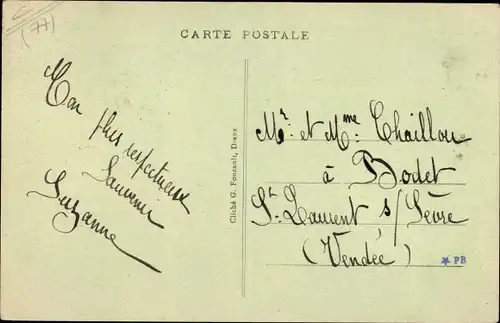 (77)
CARTE POSTALE
plus respectueux
Souvenir
Suzanne
Cliché G. Foucault, Dreux
Mr. et Mme. Chaillou
à Bodet
St. Laurent s/ Sèvre
(Vendée)
* PB